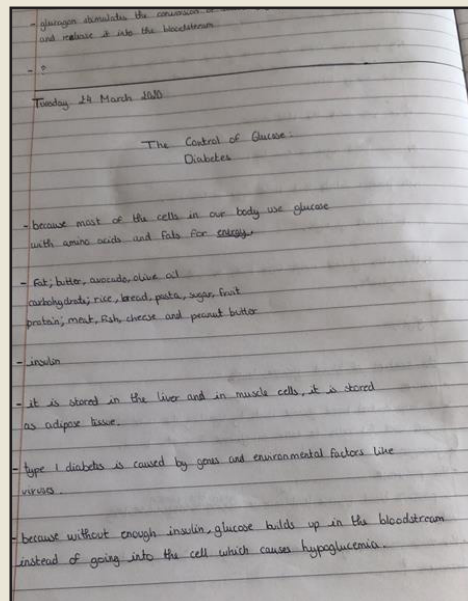 - glucagon stimulates the conversion of
and release it into the bloodstream
- ?
Tuesday 24 March 2020
The Control of Glucose.
Diabetes
- because most of the cells in our body use glucose
with amino acids and fats for energy.
- Fat; butter, avocado, olive oil
carbohydrats; rice, bread, pasta, sugar, fruit
protein; meat, fish, cheese and peanut butter
- insulin
- it is stored in the liver and in muscle cells, it is stored
as adipose tissue.
- type 1 diabetes is caused by genes and environmental factors like
viruses.
- because without enough insulin, glucose builds up in the bloodstream
instead of going into the cell which causes hypoglucemia.